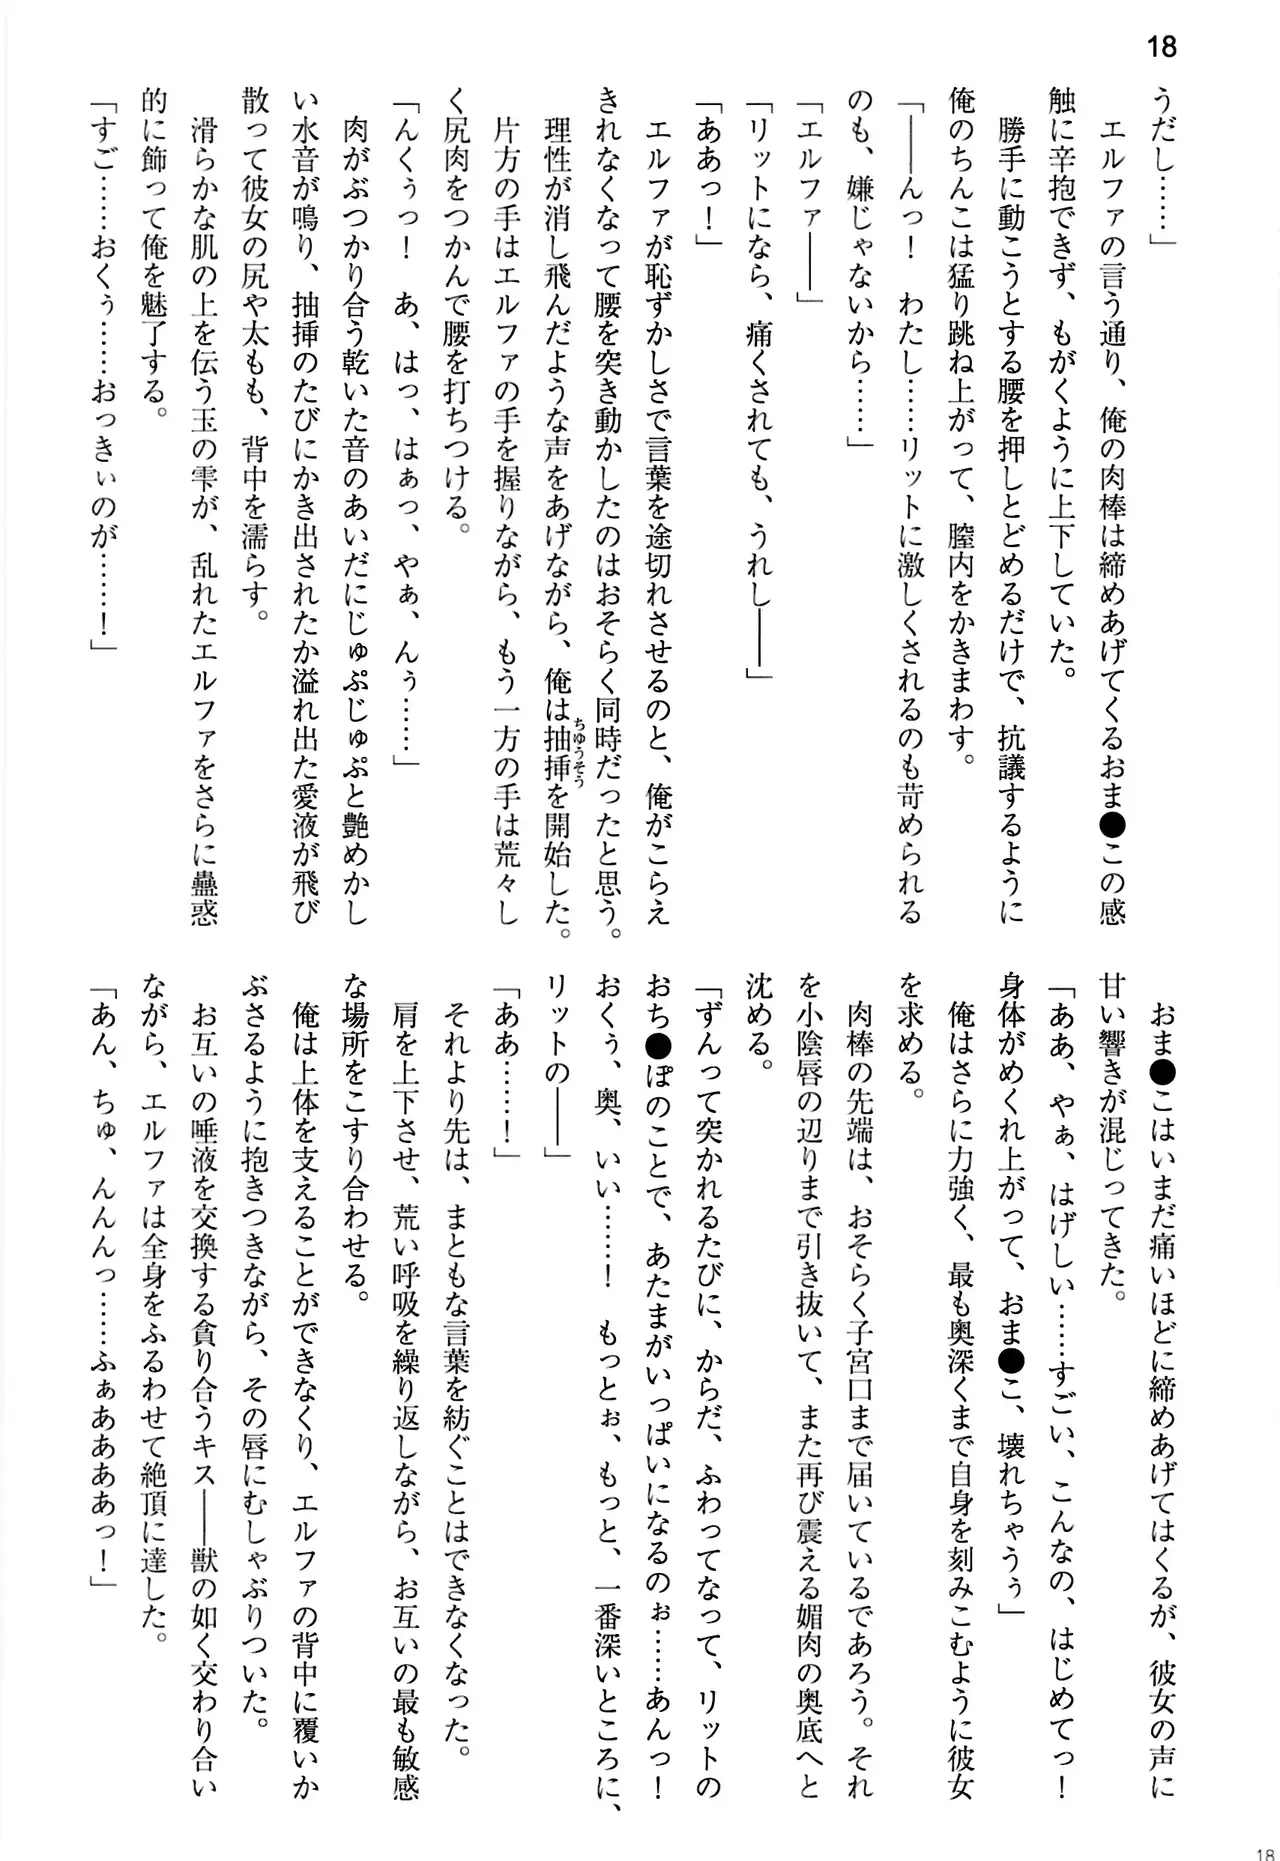 18
うだし……」
　エルファの言う通り、俺の肉棒は締めあげてくるおま●この感
触に辛抱できず、もがくように上下していた。
　勝手に動こうとする腰を押しとどめるだけで、抗議するように
俺のちんこは猛り跳ね上がって、膣内をかきまわす。
「――んっ！　わたし……リットに激しくされるのも苛められる
のも、嫌じゃないから……」
「エルファ――」
「リットになら、痛くされても、うれし――」
「ああっ！」
　エルファが恥ずかしさで言葉を途切れさせるのと、俺がこらえ
きれなくなって腰を突き動かしたのはおそらく同時だったと思う。
　理性が消し飛んだような声をあげながら、俺は抽挿を開始した。
ちゆうそう
　片方の手はエルファの手を握りながら、もう一方の手は荒々し
く尻肉をつかんで腰を打ちつける。
「んくぅっ！　あ、はっ、はぁっ、やぁ、んぅ……」
　肉がぶつかり合う乾いた音のあいだにじゅぷじゅぷと艶めかし
い水音が鳴り、抽挿のたびにかき出されたか溢れ出た愛液が飛び
散って彼女の尻や太もも、背中を濡らす。
　滑らかな肌の上を伝う玉の雫が、乱れたエルファをさらに蠱惑
的に飾って俺を魅了する。
「すご……おくぅ……おっきぃのが……！」
　おま●こはいまだ痛いほどに締めあげてはくるが、彼女の声に
甘い響きが混じってきた。
「ああ、やぁ、はげしい……すごい、こんなの、はじめてっ！
身体がめくれ上がって、おま●こ、壊れちゃうぅ」
　俺はさらに力強く、最も奥深くまで自身を刻みこむように彼女
を求める。
　肉棒の先端は、おそらく子宮口まで届いているであろう。それ
を小陰唇の辺りまで引き抜いて、また再び震える媚肉の奥底へと
沈める。
「ずんって突かれるたびに、からだ、ふわってなって、リットの
おち●ぽのことで、あたまがいっぱいになるのぉ……あんっ！
おくぅ、奥、いい……！　もっとぉ、もっと、一番深いところに、
リットの――」
「ああ……！」
　それより先は、まともな言葉を紡ぐことはできなくなった。
　肩を上下させ、荒い呼吸を繰り返しながら、お互いの最も敏感
な場所をこすり合わせる。
　俺は上体を支えることができなくり、エルファの背中に覆いか
ぶさるように抱きつきながら、その唇にむしゃぶりついた。
　お互いの唾液を交換する貪り合うキス――獣の如く交わり合い
ながら、エルファは全身をふるわせて絶頂に達した。
「あん、ちゅ、んんんっ……ふぁああああっ！」
18